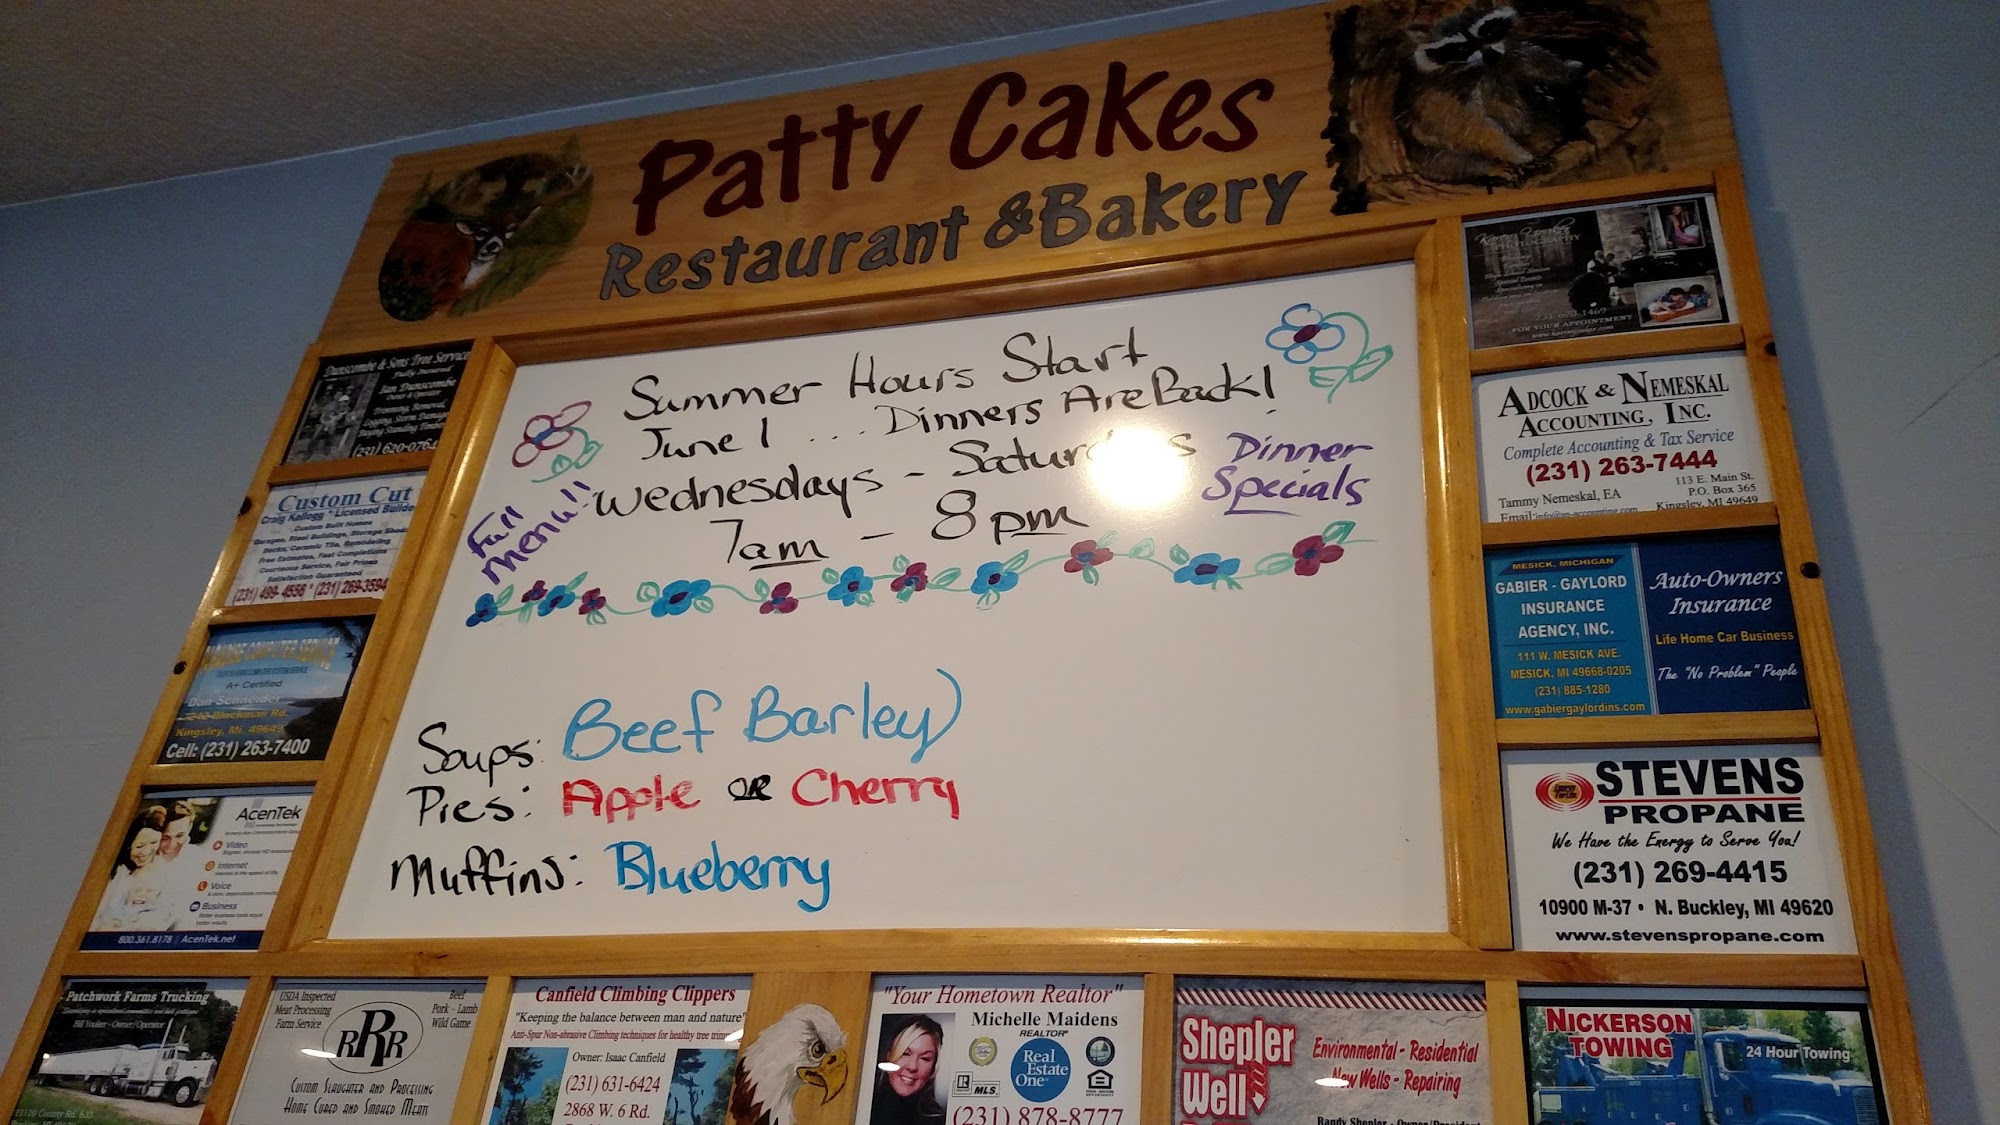 Patty Cakes
Restaurant & Bakery
Summer Hours Start
June 1 ... Dinners Are Back!
Wednesdays - Saturdays
7am - 8pm
Full
menu!!
Dinner
Specials
Soups: Beef Barley
Pies: Apple or Cherry
Muffins: Blueberry
Dunscombe & Sons Tree Service
Fully Insured
Ian Dunscombe
Owner & Operator
Trimming, Removal,
Logging, Storm Damage
Buying Standing Timber
(231) 620-0764
Custom Cut
Craig Kallogg * Licensed Builde
Custom Built Homes
Garages, Steel Buildings, Storage Sheds
Decks, Ceramic Tile, Remodeling
Free Estimates, Fast Completions
Courteous Service, Fair Prices
Satisfaction Guaranteed
(231) 499-4556 * (231) 269-3594
COMPUTER SERVICE
A+ Certified
Dan Schneider
Blackman Rd.
Kingsley, Mi. 49649
Cell: (231) 263-7400
AcenTek
Video
Internet
Voice
Business
800.361.8178 | AcenTek.net
Patchwork Farms Trucking
Bill Yonker - Owner/Operator
County Rd. 633
USDA Inspected
Meat Processing
Farm Service
Beef
Pork - Lamb
Wild Game
RRR
Custom Slaughter and Processing
Home Cured and Smoked Meats
Canfield Climbing Clippers
"Keeping the balance between man and nature"
Anti-Spur Non-abrasive Climbing techniques for healthy tree trim
Owner: Isaac Canfield
(231) 631-6424
2868 W. 6 Rd.
"Your Hometown Realtor"
Michelle Maidens
REALTOR®
Real
Estate
One
MLS
(231) 878-8777
Shepler
Well
Environmental - Residential
New Wells - Repairing
Randy Shepler - Owner/President
NICKERSON
TOWING
24 Hour Towing
PHOTOGRAPHY
231-620-1469
FOR YOUR APPOINTMENT
Adcock & Nemeskal
Accounting, Inc.
Complete Accounting & Tax Service
(231) 263-7444
Tammy Nemeskal, EA
Email: info@an-accounting.com
113 E. Main St.
P.O. Box 365
Kingsley, MI 49649
MESICK, MICHIGAN
GABIER - GAYLORD
INSURANCE
AGENCY, INC.
111 W. MESICK AVE.
MESICK, MI 49668-0205
(231) 885-1280
www.gabiergaylordins.com
Auto-Owners
Insurance
Life Home Car Business
The "No Problem" People
STEVENS
PROPANE
We Have the Energy to Serve You!
(231) 269-4415
10900 M-37 • N. Buckley, MI 49620
www.stevenspropane.com